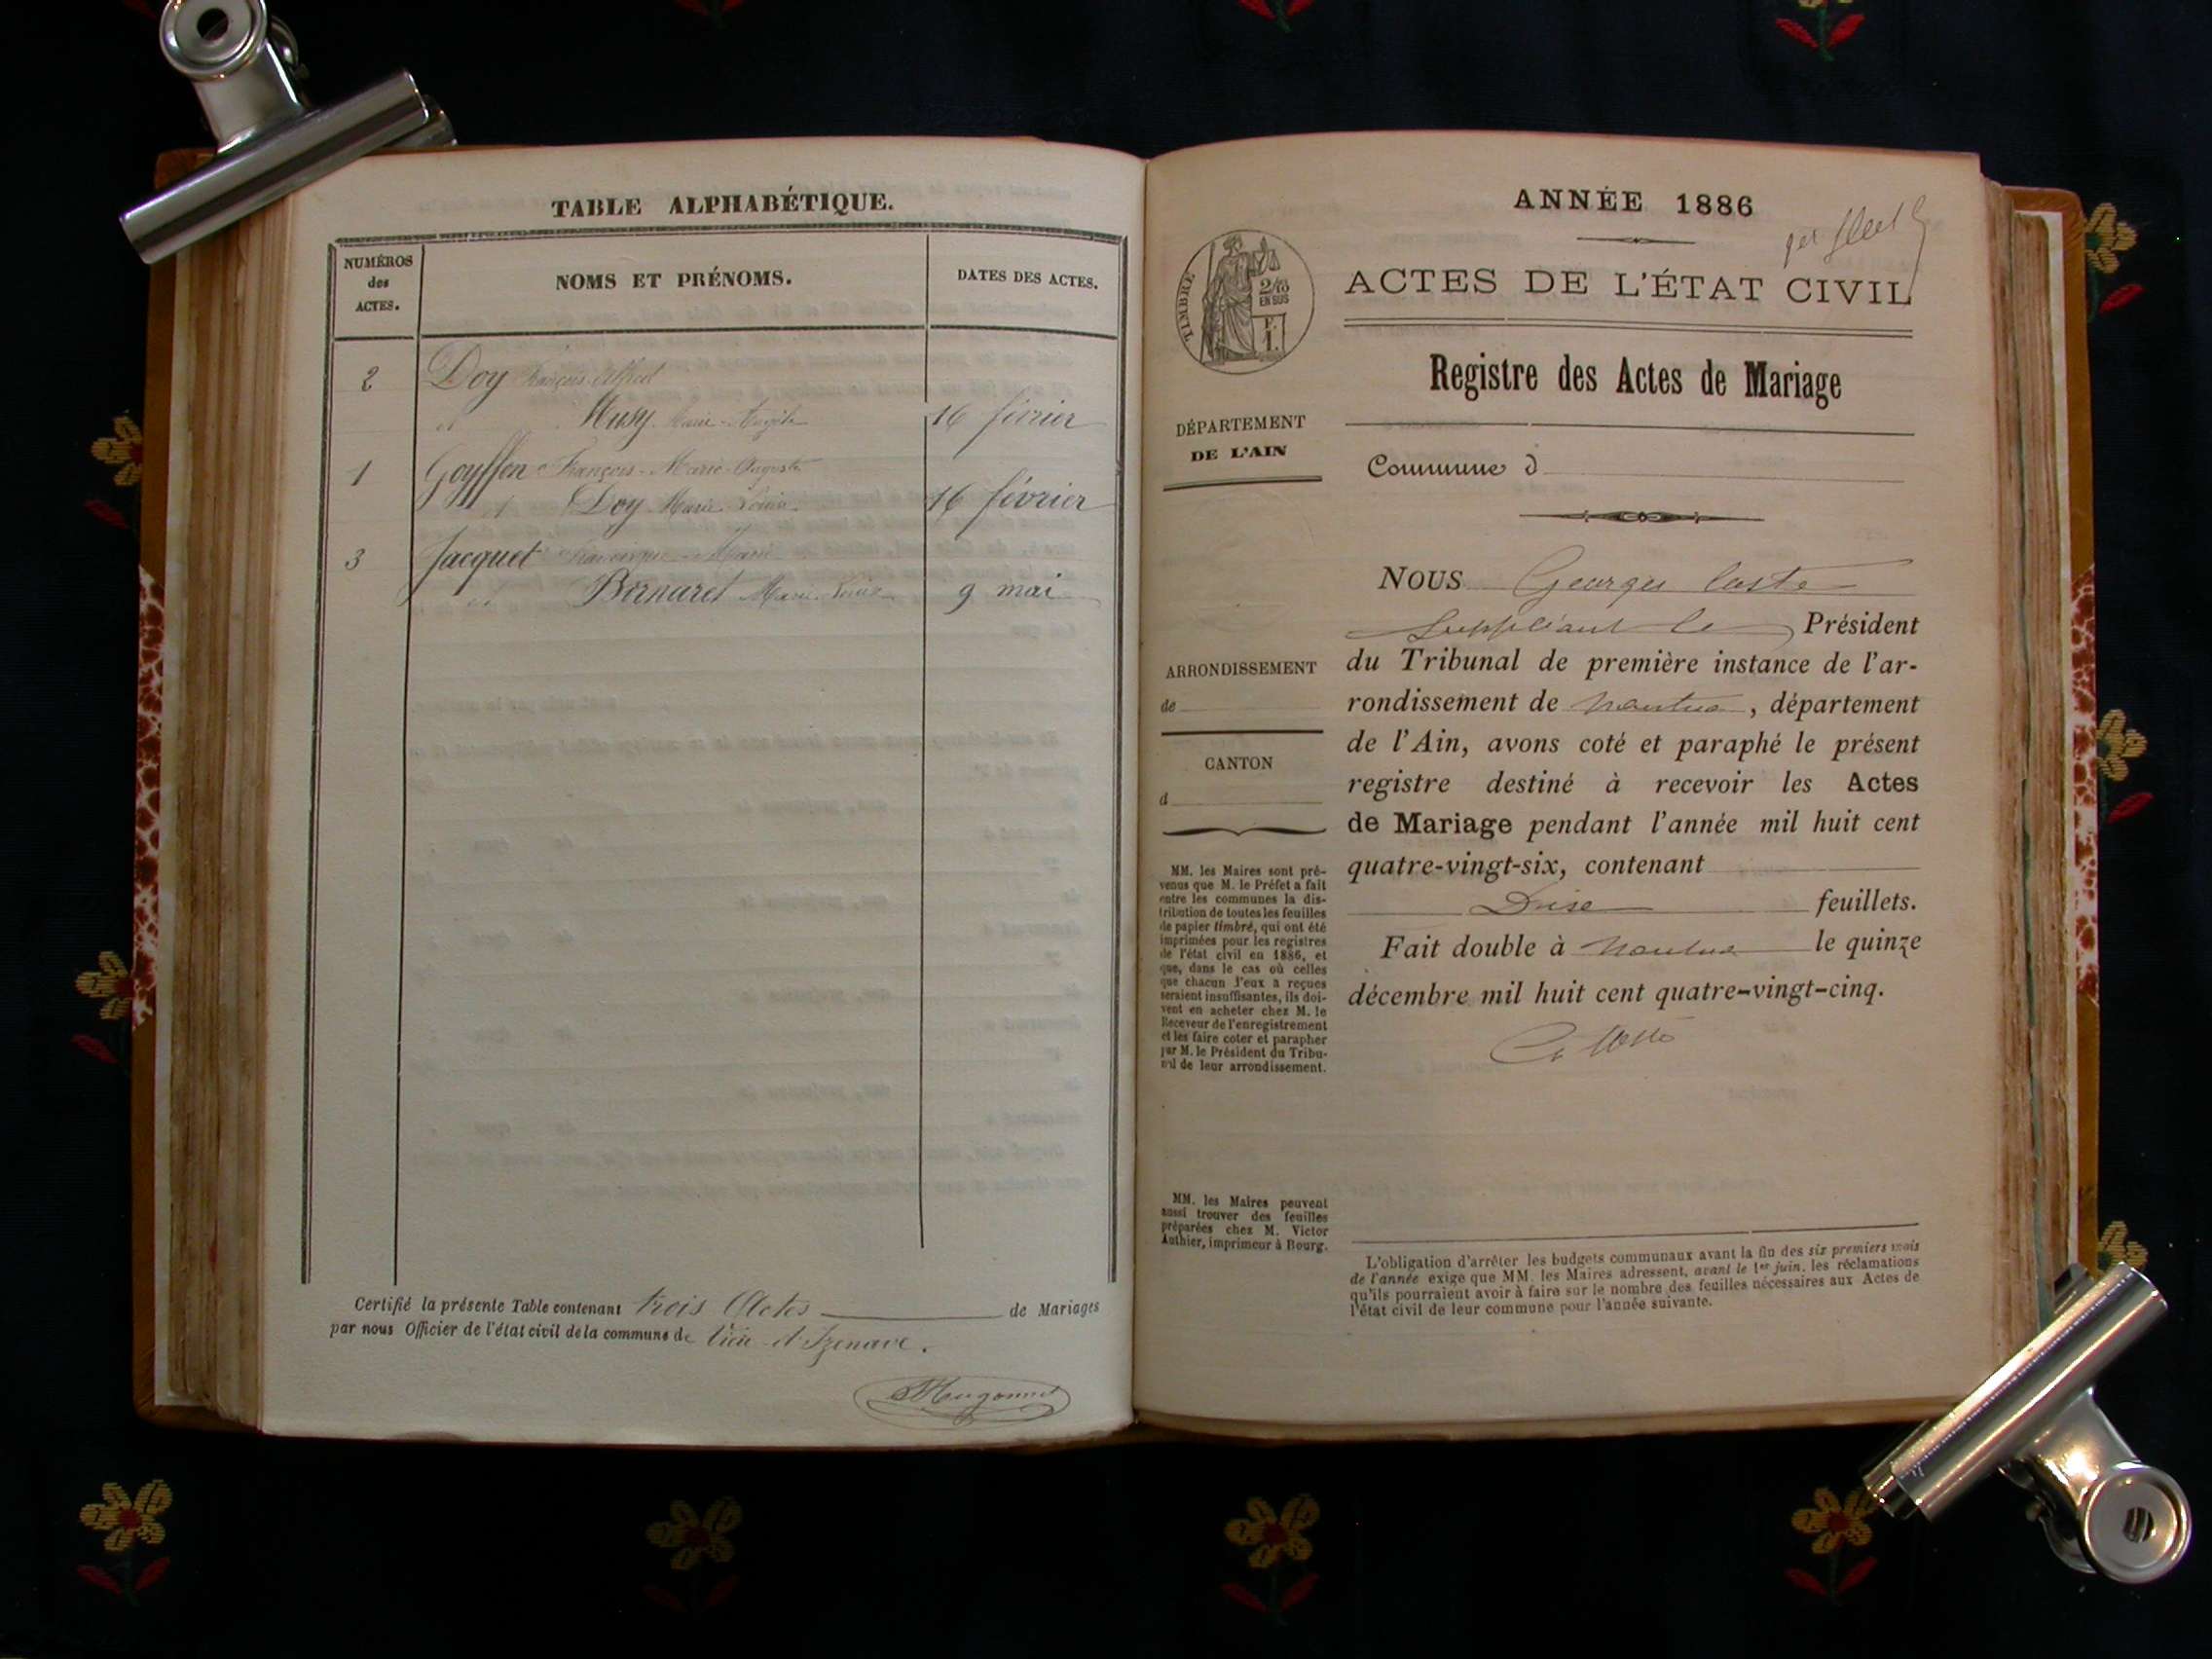 TABLE ALPHABÉTIQUE.
NUMÉROS
des
ACTES.
NOMS ET PRÉNOMS.
DATES DES ACTES.
2 Doy François Alfred
et Musy Marie 16 février
1 Goyffon François-Marie-Auguste
et Doy Marie Louise 16 février
3 Jacquet Marie
et Bornaret Marie Louise 9 mai
Certifié la présente Table contenant trois Actes de Mariages
par nous Officier de l'état civil de la commune de Vieu-d'Izenave.
Hugonnet
ANNÉE 1886
ACTES DE L'ÉTAT CIVIL
TIMBRE
2/10
EN SUS
Registre des Actes de Mariage
DÉPARTEMENT
DE L'AIN
Commune d
ARRONDISSEMENT
de
CANTON
d
MM. les Maires sont pré-
venus que M. le Préfet a fait
entre les communes la dis-
tribution de toutes les feuilles
de papier timbré, qui ont été
imprimées pour les registres
de l'état civil en 1886, et
que, dans le cas où celles
que chacun d'eux a reçues
seraient insuffisantes, ils doi-
vent en acheter chez M. le
Receveur de l'enregistrement
et les faire coter et parapher
par M. le Président du Tribu-
nal de leur arrondissement.
MM. les Maires peuvent
aussi trouver des feuilles
préparées chez M. Victor
Authier, imprimeur à Bourg.
NOUS Georges Coste
Suppléant le Président
du Tribunal de première instance de l'ar-
rondissement de Nantua, département
de l'Ain, avons coté et paraphé le présent
registre destiné à recevoir les Actes
de Mariage pendant l'année mil huit cent
quatre-vingt-six, contenant
feuillets.
Fait double à Nantua le quinze
décembre mil huit cent quatre-vingt-cinq.
L'obligation d'arrêter les budgets communaux avant la fin des six premiers mois
de l'année exige que MM. les Maires adressent, avant le 1er juin, les réclamations
qu'ils pourraient avoir à faire sur le nombre des feuilles nécessaires aux Actes de
l'état civil de leur commune pour l'année suivante.